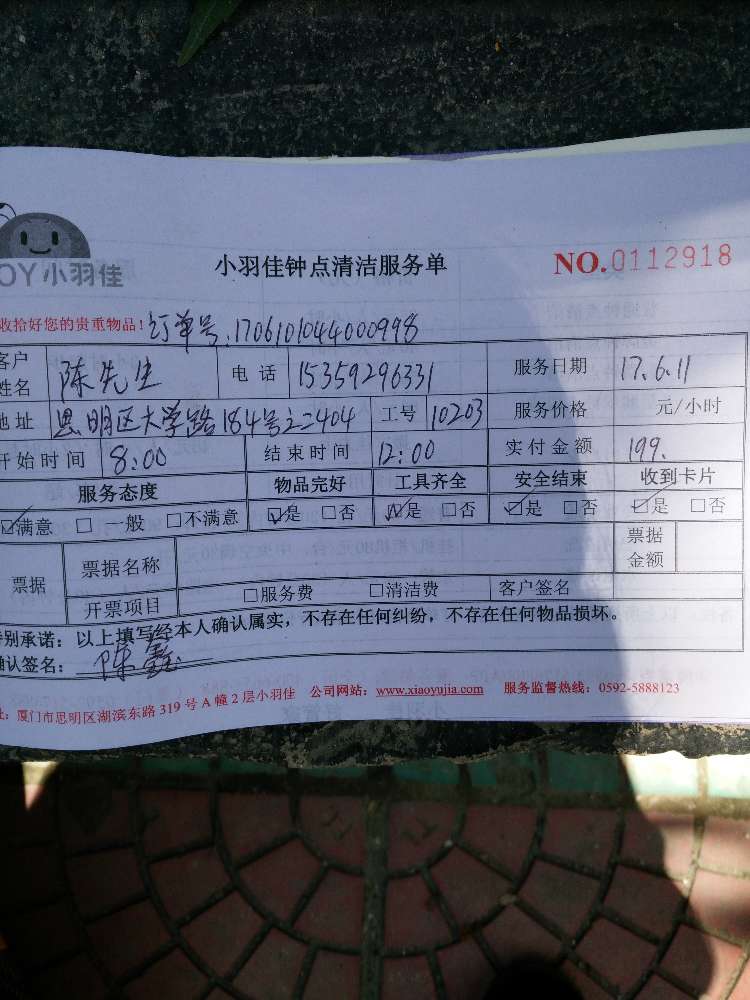 OY小羽佳
小羽佳钟点清洁服务单
NO.0112918
收拾好您的贵重物品！订单号:170610104400998
客户姓名 陈先生 电话 15359296331 服务日期 17.6.11
地址 思明区大学路184号之二404 工号 10203 服务价格 元/小时
开始时间 8:00 结束时间 12:00 实付金额 199.
服务态度 物品完好 工具齐全 安全结束 收到卡片
☑满意 □一般 □不满意 ☑是 □否 ☑是 □否 ☑是 □否 ☑是 □否
票据 票据名称 票据金额
开票项目 □服务费 □清洁费 客户签名
特别承诺：以上填写经本人确认属实，不存在任何纠纷，不存在任何物品损坏。
确认签名：陈鑫
址：厦门市思明区湖滨东路319号A幢2层小羽佳 公司网站：www.xiaoyujia.com 服务监督热线：0592-5888123